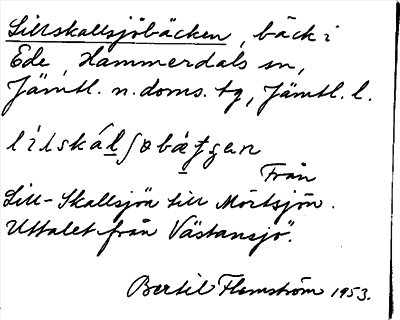 Lillskallsjöbäcken, bäck i
Ede, Hammerdals sn,
Jämtl. n. doms. tg, Jämtl. l.
Från
Lill-Skallsjön till Mörtsjön.
Uttalet från Västansjö.
Bertil Flemström 1953.